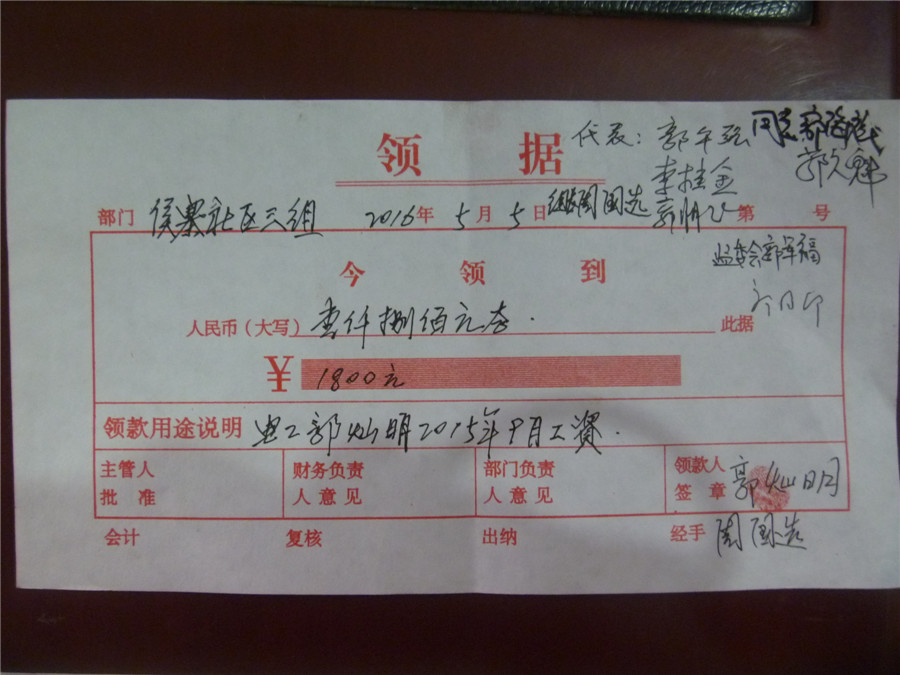 领 据
代表：郭午强 同意
李桂金
部门 侯寨社区三组 2016年 5月 5日 组长周国选 第 号
监委会郭军福
今 领 到
人民币（大写） 壹仟捌佰元整. 此据
¥ 1800元
领款用途说明 电工郭灿明2015年9月工资.
主管人 财务负责 部门负责 领款人
批 准 人意见 人意见 签 章 郭灿明
会计 复核 出纳 经手 周国选